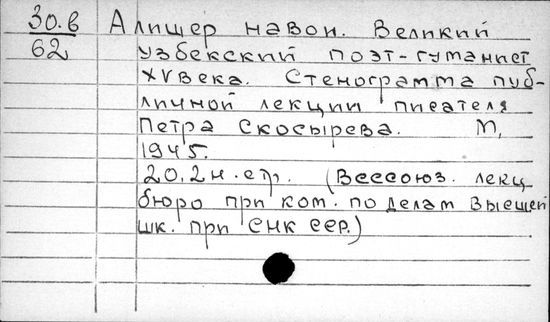 30.в
62
Алишер навои. Великий
узбекский поэт-гуманист
XV века. Стенограмма пуб-
личной лекции писателя
Петра Скосырева. М,
1945.
20,2 н. стр. (Всесоюз. лекц.
бюро при ком. по делам Высшей
шк. при СНК ССР.)